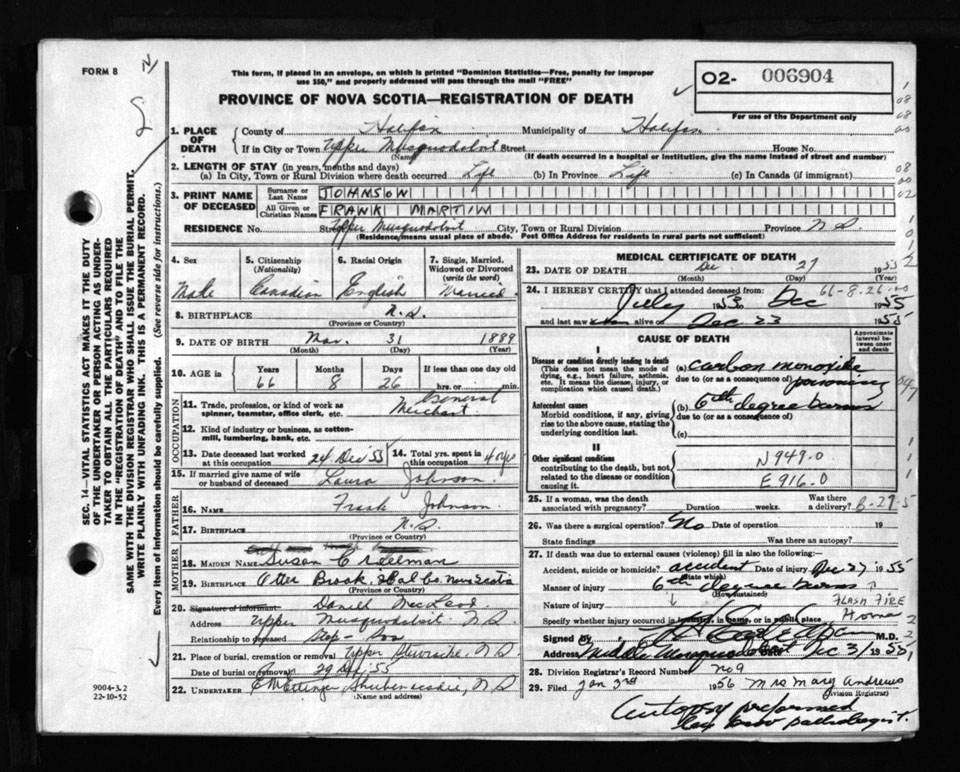 FORM 8
This form, if placed in an envelope, on which is printed "Dominion Statistics—Free, penalty for improper
use $50," and properly addressed will pass through the mail "FREE"
PROVINCE OF NOVA SCOTIA—REGISTRATION OF DEATH
02- 006904
For use of the Department only
1. PLACE OF DEATH
County of Halifax Municipality of Halifax
If in City or Town Upper Musquodoboit Street House No.
(Name) (If death occurred in a hospital or institution, give the name instead of street and number)
2. LENGTH OF STAY (in years, months and days)
(a) In City, Town or Rural Division where death occurred Life (b) In Province Life (c) In Canada (if immigrant)
3. PRINT NAME OF DECEASED
Surname or Last Name JOHNSON
All Given or Christian Names FRANK MARTIN
RESIDENCE No. Street Upper Musquodoboit City, Town or Rural Division Province N.S.
(Residence means usual place of abode. Post Office Address for residents in rural parts not sufficient)
4. Sex
Male
5. Citizenship
(Nationality)
Canadian
6. Racial Origin
English
7. Single, Married,
Widowed or Divorced
(write the word)
Married
8. BIRTHPLACE N.S.
(Province or Country)
9. DATE OF BIRTH Mar. 31 1889
(Month) (Day) (Year)
10. AGE in Years Months Days If less than one day old
66 8 26 hrs. or min.
OCCUPATION
11. Trade, profession, or kind of work as General
spinner, teamster, office clerk, etc. Merchant
12. Kind of industry or business, as cotton-
mill, lumbering, bank, etc.
13. Date deceased last worked
at this occupation 24 Dec 55
14. Total yrs. spent in
this occupation 40 yrs
15. If married give name of wife
or husband of deceased Laura Johnson
FATHER
16. NAME Frank Johnson
17. BIRTHPLACE N.S.
(Province or Country)
MOTHER
18. MAIDEN NAME Susan Creelman
19. BIRTHPLACE Otter Brook, Hal Co. Nova Scotia
(Province or Country)
20. Signature of informant Daniel MacLeod
Address Upper Musquodoboit N.S.
Relationship to deceased Step-Son
21. Place of burial, cremation or removal Upper Stewiacke, N.S.
Date of burial or removal 29 55
22. UNDERTAKER Ettinger Shubenacadie, N.S.
(Name and address)
MEDICAL CERTIFICATE OF DEATH
23. DATE OF DEATH Dec 27 1955
(Month) (Day) (Year)
66-8-26
24. I HEREBY CERTIFY that I attended deceased from:
1953 Dec 1955
and last saw alive on Dec 23 1955
CAUSE OF DEATH
Approximate interval between onset and death
I
Disease or condition directly leading to death
(This does not mean the mode of
dying, e.g., heart failure, asthenia,
etc. It means the disease, injury, or
complication which caused death.)
(a) carbon monoxide
due to (or as a consequence of) poisoning
Antecedent causes
Morbid conditions, if any, giving
rise to the above cause, stating the
underlying condition last.
(b) 6th degree burns
due to (or as a consequence of)
(c)
II
Other significant conditions
contributing to the death, but not
related to the disease or condition
causing it.
N949.0
E916.0
25. If a woman, was the death Was there
associated with pregnancy? Duration weeks. a delivery?
26. Was there a surgical operation? No Date of operation 19
State findings Was there an autopsy?
27. If death was due to external causes (violence) fill in also the following:—
Accident, suicide or homicide? accident Date of injury Dec 27 1955
(State which)
Manner of injury 6th degree burns
(How sustained)
Nature of injury FLASH FIRE
Specify whether injury occurred in industry, in home, or in public place Home
Signed by M.D.
Address Middle Musquodoboit Dec 31 1955
28. Division Registrar's Record Number No 9
29. Filed Jan 3rd 1956 Mrs Mary Andrews
(Division Registrar)
Autopsy performed
by pathologist.
SEC. 14—VITAL STATISTICS ACT MAKES IT THE DUTY
OF THE UNDERTAKER OR PERSON ACTING AS UNDER-
TAKER TO OBTAIN ALL THE PARTICULARS REQUIRED
IN THE "REGISTRATION OF DEATH" AND TO FILE THE
SAME WITH THE DIVISION REGISTRAR WHO SHALL ISSUE THE BURIAL PERMIT.
WRITE PLAINLY WITH UNFADING INK. THIS IS A PERMANENT RECORD.
Every item of information should be carefully supplied. (See reverse side for instructions.)
9004-3.2
22-10-52